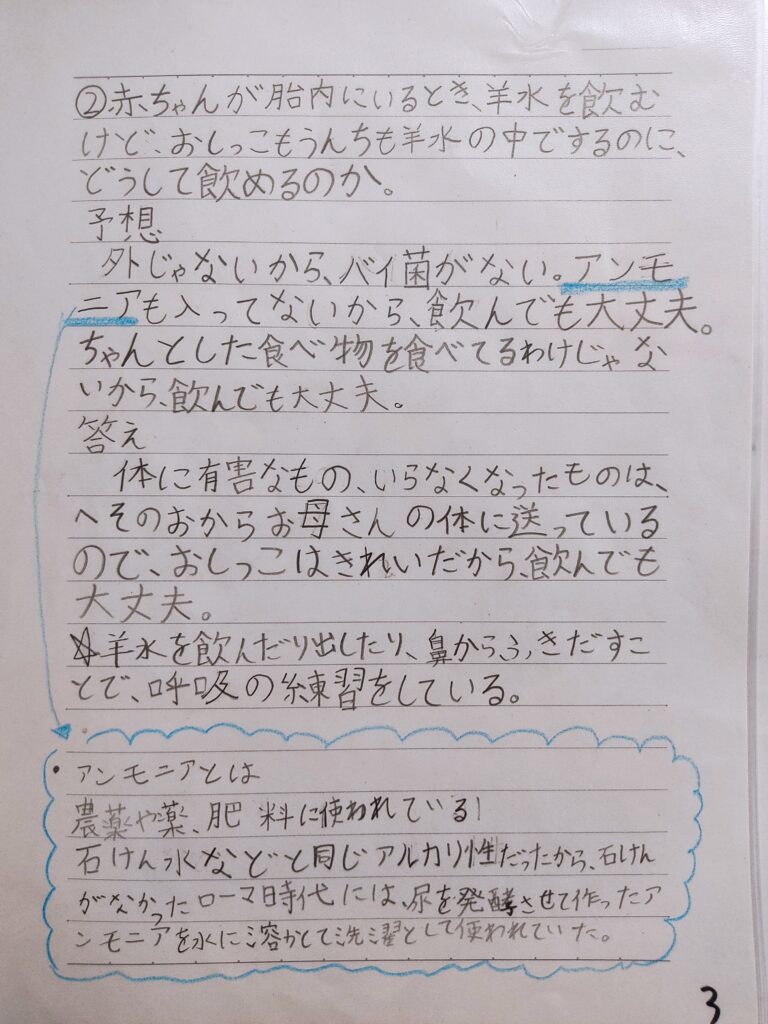 ②赤ちゃんが胎内にいるとき、羊水を飲む
けど、おしっこもうんちも羊水の中でするのに、
どうして飲めるのか。
予想
外じゃないから、バイ菌がない。アンモ
ニアも入ってないから、飲んでも大丈夫。
ちゃんとした食べ物を食べてるわけじゃな
いから、飲んでも大丈夫。
答え
体に有害なもの、いらなくなったものは、
へそのおからお母さんの体に送っている
ので、おしっこはきれいだから、飲んでも
大丈夫。
☆羊水を飲んだり出したり、鼻からふきだすこ
とで、呼吸の練習をしている。
・アンモニアとは
農薬や薬、肥料に使われている!
石けん水などと同じアルカリ性だったから、石けん
がなかったローマ時代には、尿を発酵させて作ったア
ンモニアを水に溶かして洗濯として使われていた。
3